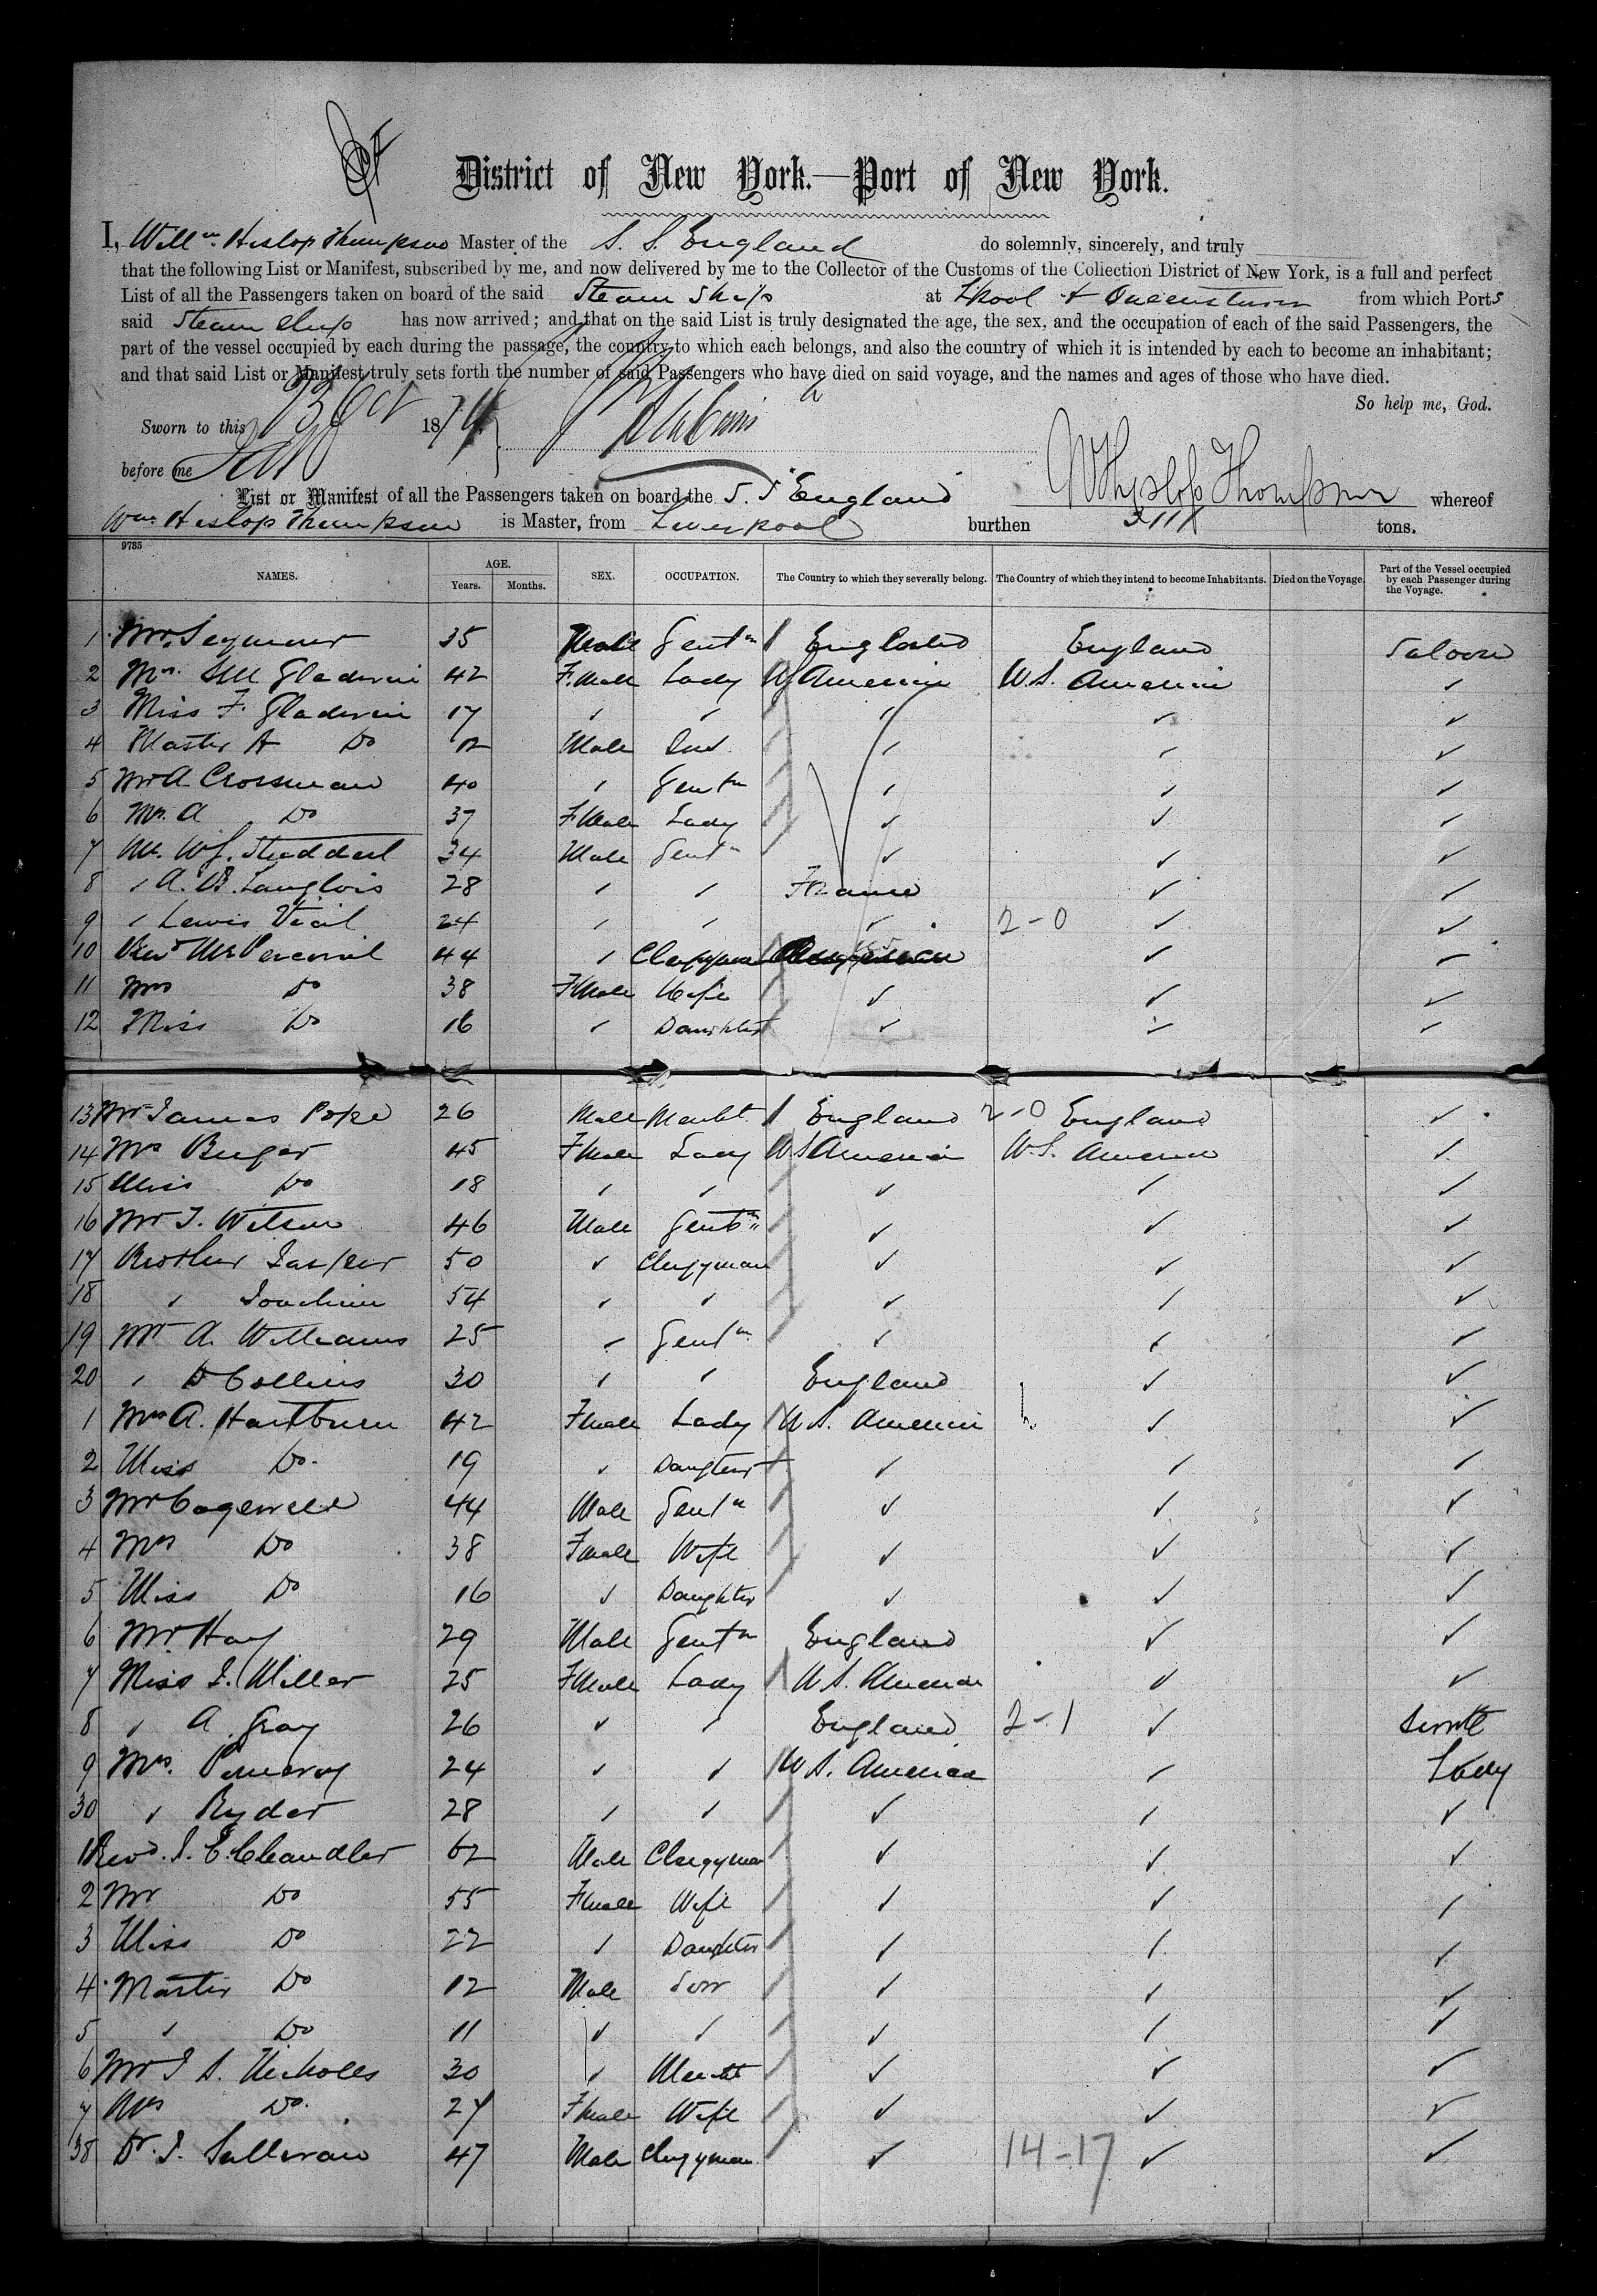 District of New York.—Port of New York.
I, Willm. Heslop Thompson Master of the S. S. England do solemnly, sincerely, and truly
that the following List or Manifest, subscribed by me, and now delivered by me to the Collector of the Customs of the Collection District of New York, is a full and perfect
List of all the Passengers taken on board of the said Steam Ship at L'pool & Queenstown from which Ports
said Steam Ship has now arrived; and that on the said List is truly designated the age, the sex, and the occupation of each of the said Passengers, the
part of the vessel occupied by each during the passage, the country to which each belongs, and also the country of which it is intended by each to become an inhabitant;
and that said List or Manifest truly sets forth the number of said Passengers who have died on said voyage, and the names and ages of those who have died.
So help me, God.
Sworn to this 13 Oct 1874
before me
WHyslop Thompson
List or Manifest of all the Passengers taken on board the S. S. England whereof
Wm. Heslop Thompson is Master, from Liverpool burthen tons.
9785
NAMES. AGE. Years. Months. SEX. OCCUPATION. The Country to which they severally belong. The Country of which they intend to become Inhabitants. Died on the Voyage. Part of the Vessel occupied by each Passenger during the Voyage.
1 Mr. Seymour 35 Male Gentn England England Saloon
2 Mrs. Gladwin 42 Female Lady America U.S. America ✓
3 Miss F. Gladwin 17 ✓ ✓ ✓ ✓ ✓
4 Master A Do 12 Male Son ✓ ✓ ✓
5 Mr A Crossman 40 ✓ Gentn ✓ ✓ ✓
6 Mrs. A Do 37 Female Lady ✓ ✓ ✓
7 Mr. W. Studdert 34 Male Gentn ✓ ✓ ✓
8 ✓ A. B. Langlois 28 ✓ ✓ France ✓ ✓
9 ✓ Lewis Viail 24 ✓ ✓ ✓ 2-0 ✓ ✓
10 Revd Mr Percival 44 ✓ Clergyman ✓ ✓
11 Mrs Do 38 Female Wife ✓ ✓ ✓
12 Miss Do 16 ✓ Daughter ✓ ✓ ✓
13 Mr James Pope 26 Male Mercht. England 2-0 England ✓
14 Mrs Burger 45 Female Lady U S America U.S. America ✓
15 Miss Do 18 ✓ ✓ ✓ ✓ ✓
16 Mr J. Wilson 46 Male Gentn ✓ ✓ ✓
17 Brother Jasper 50 ✓ Clergyman ✓ ✓ ✓
18 ✓ Joachim 54 ✓ ✓ ✓ ✓ ✓
19 Mr A. Williams 25 ✓ Gentn ✓ ✓ ✓
20 ✓ D Collins 30 ✓ ✓ England ✓ ✓
1 Mrs A. Hartburn 42 Female Lady U S. America ✓ ✓
2 Miss Do. 19 ✓ Daughter ✓ ✓ ✓
3 Mr Cogswell 44 Male Gentn ✓ ✓ ✓
4 Mrs Do 38 Female Wife ✓ ✓ ✓
5 Miss Do 16 ✓ Daughter ✓ ✓ ✓
6 Mr Hay 29 Male Gentn England ✓ ✓
7 Miss J. Miller 25 Female Lady U S. America ✓ ✓
8 ✓ A. Gray 26 ✓ ✓ England 2-1 ✓
9 Mrs. Pomeroy 24 ✓ ✓ U S. America ✓ Lady
30 ✓ Ryder 28 ✓ ✓ ✓ ✓ ✓
1 Revd. J. E. Chandler 62 Male Clergyman ✓ ✓ ✓
2 Mr Do 55 Female Wife ✓ ✓ ✓
3 Miss Do 22 ✓ Daughter ✓ ✓ ✓
4 Master Do 12 Male Son ✓ ✓ ✓
5 ✓ Do 11 ✓ ✓ ✓ ✓ ✓
6 Mr J S. Nicholls 30 ✓ Mercht ✓ ✓ ✓
7 Mrs Do. 27 Female Wife ✓ ✓ ✓
38 Dr. J. Sullivan 47 Male Clergyman ✓ 14-17 ✓ ✓